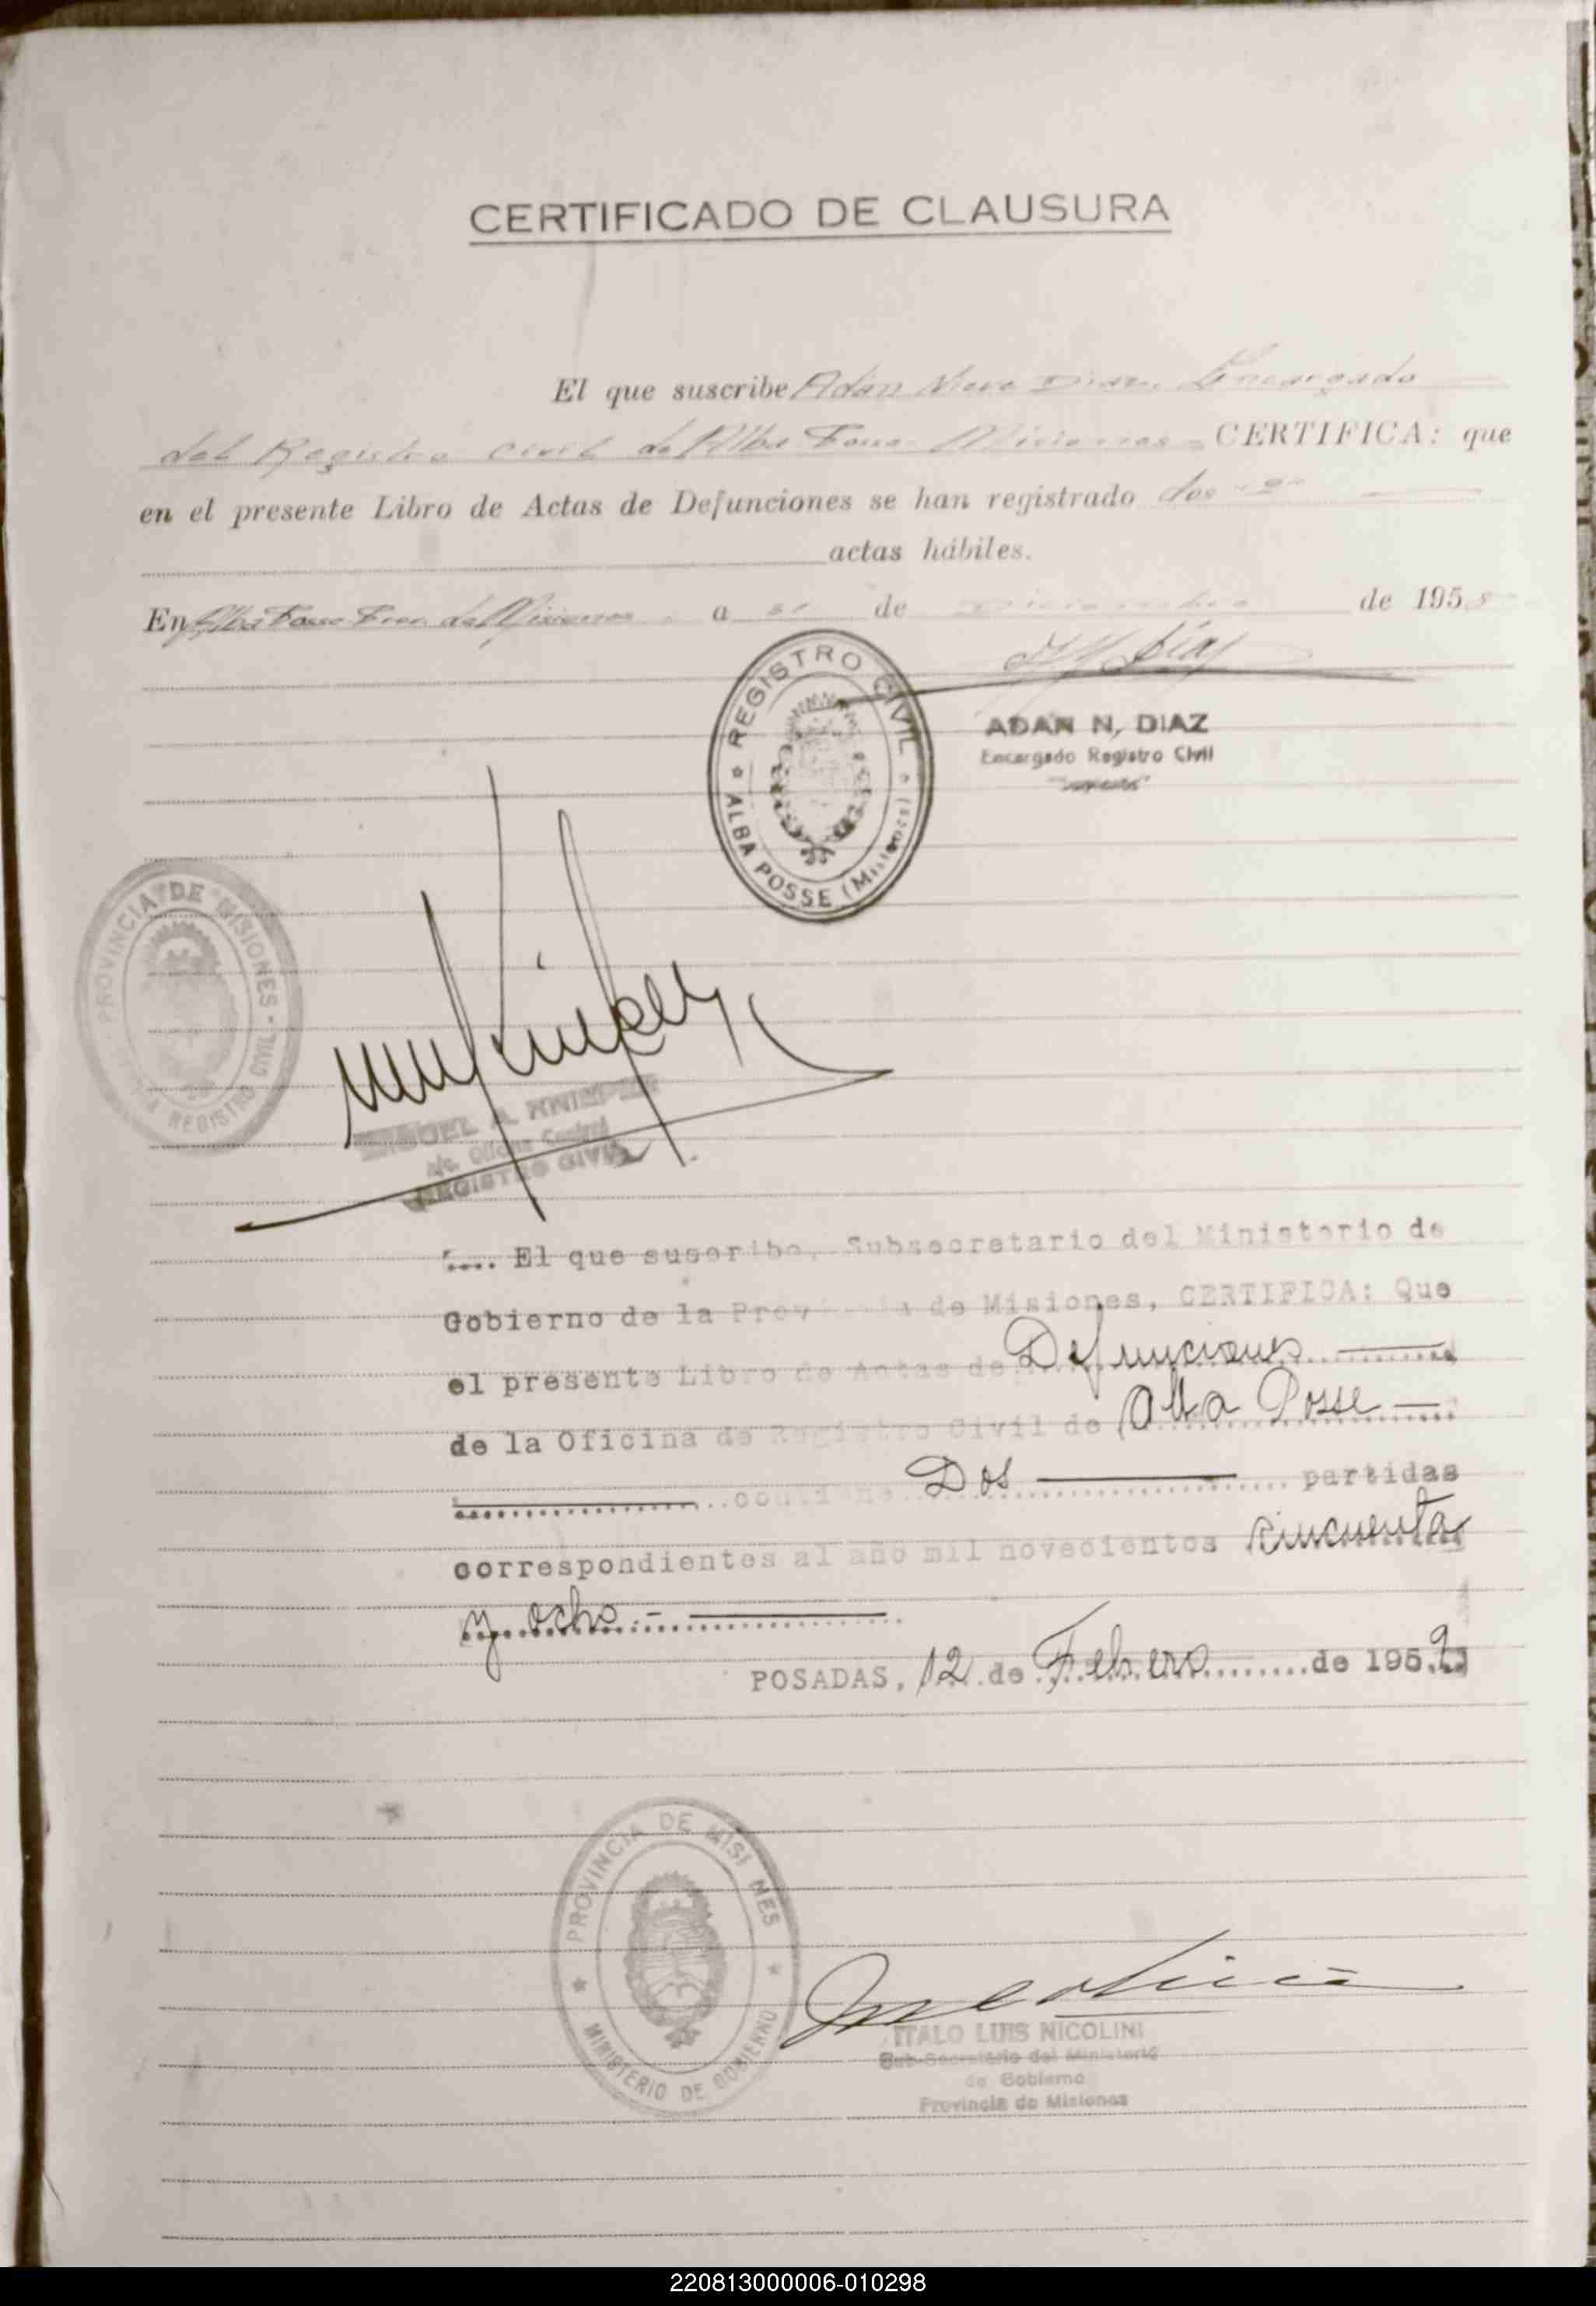 CERTIFICADO DE CLAUSURA
El que suscribe Adan Nieve Diaz, Encargado
del Registro Civil de Alba Posse Misiones - CERTIFICA: que
en el presente Libro de Actas de Defunciones se han registrado dos "2"
actas hábiles.
En Alba Posse Prov. de Misiones a 31 de Diciembre de 1958
REGISTRO CIVIL
ALBA POSSE (Misiones)
ADAN N, DIAZ
Encargado Registro Civil
"Suplente"
PROVINCIA DE MISIONES - CIVIL
REGISTRO
A. KNIEPER
a/c. Oficina Central
REGISTRO CIVIL
.... El que suscribe, Subsecretario del Ministerio de
Gobierno de la Provincia de Misiones, CERTIFICA: Que
el presente Libro de Actas de Defunciones
de la Oficina de Registro Civil de Alba Posse
contiene Dos partidas
correspondientes al año mil novecientos cincuenta
y ocho.-
POSADAS, 12 de Febrero de 1959
PROVINCIA DE MISI NES
MINISTERIO DE GOBIERNO
ITALO LUIS NICOLINI
Sub-Secretario del Ministerio
de Gobierno
Provincia de Misiones
220813000006-010298